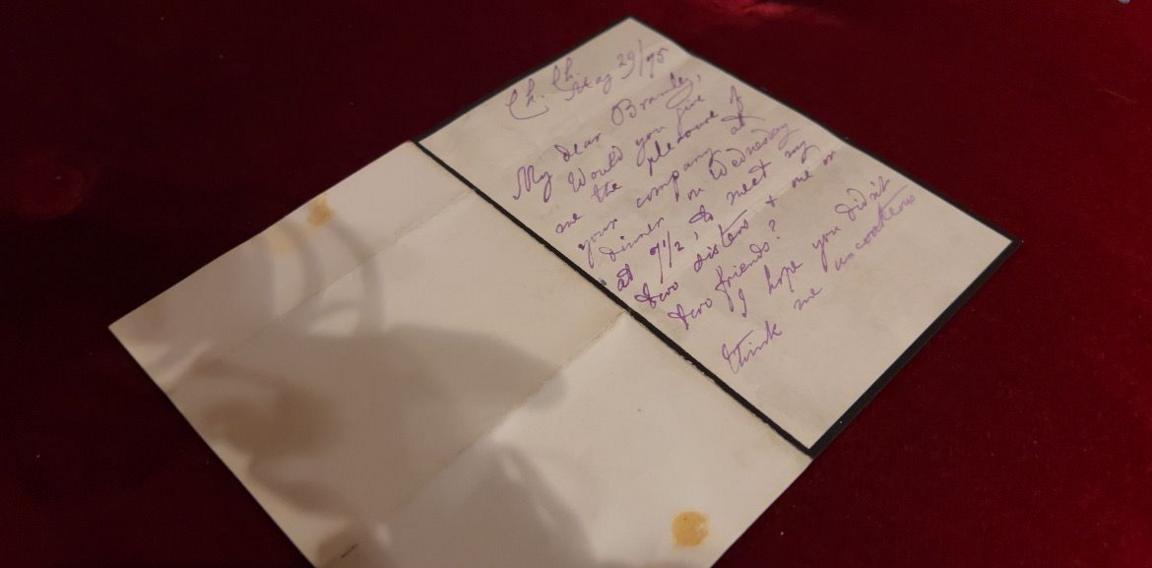 Ch. Ch.
May 29/95
My dear Bramley,
Would you give
me the pleasure of
your company at
dinner on Wednesday
at 7 1/2, to meet my
two sisters & one or
two friends?
I hope you didn't
think me uncourteous